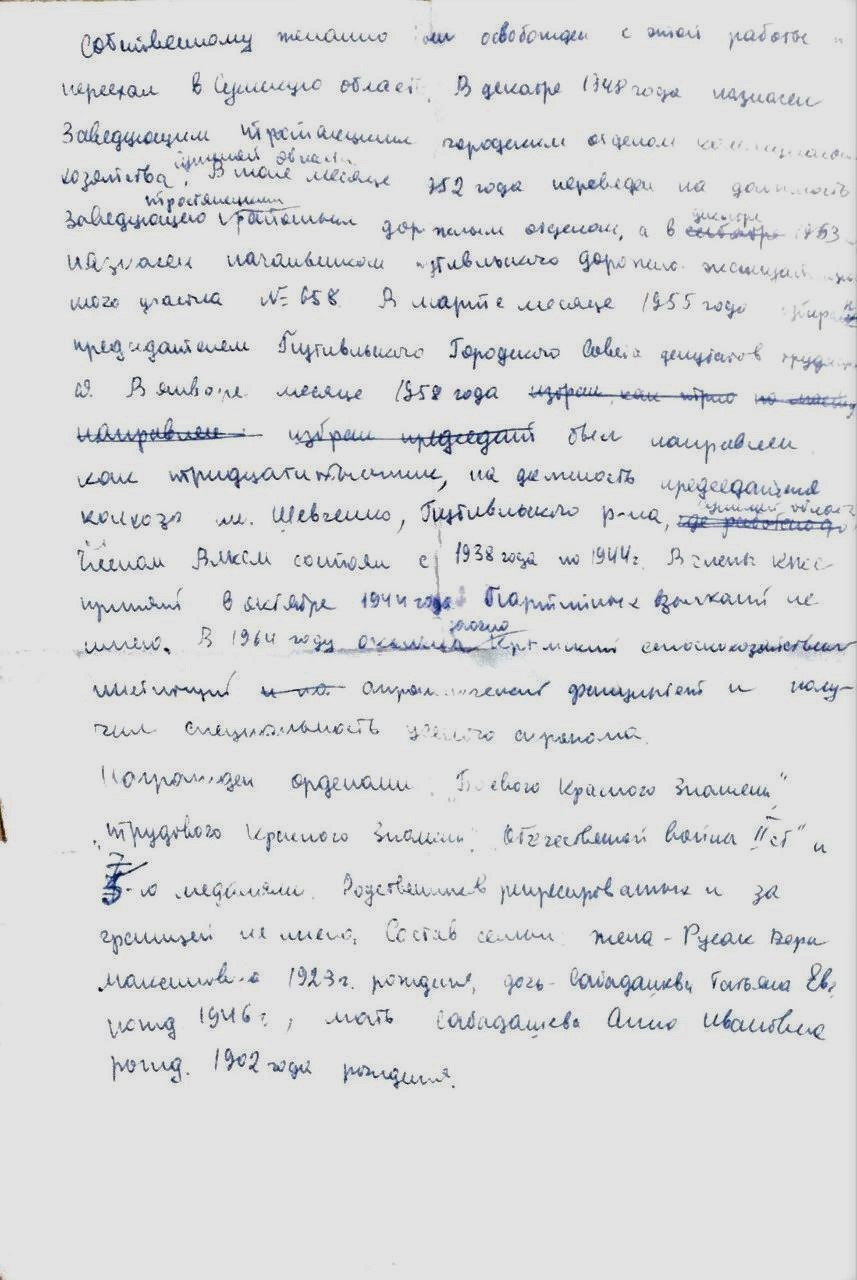 Собственному желанию был освобожден с этой работы и
переехал в Сумскую област. В декабре 1948 года назначен
Заведующим тростянецким городским отделом коммунального
хозяйства Сумской области, В мае месяце 1952 года переведен на должность
Заведующего тростянецким районным дорожным отделом, а в сентябре декабре 1953
назначен начальником Путивльского дорожно-эксплуатацион-
ного участка № 658. В марте месяце 1955 года избран
председателем Путивльского Городского Совета депутатов трудящих-
ся. В январе месяце 1958 года избран, как
направлен избран председат был направлен
как тридцатитысячник, на должность председателя
колхоза им. Шевченко, Путивльского р-на, Сумской области где работаю до
Членом ВЛКСМ состоял с 1938 года по 1944 г. В члены КПСС
принят в октябре 1944 года Партийных взысканий не
имею. В 1964 году окончил заочно Крымский сельскохозяйственный
институт и по агрономический факультет и полу-
чил специальность ученого агронома.
Награжден орденами: „Боевого Красного Знамени",
„Трудового Красного Знамени", Отечественной войны II ст" и
7-ю медалями. Родственников репресированных и за
границей не имею. Состав семьи: жена - Русак Вера
Максимовна 1923 г. рождения, дочь - Сабадашева Татьяна Евг.
рожд 1946 г, мать Сабадашева Анна Ивановна
рожд. 1902 года рождения.